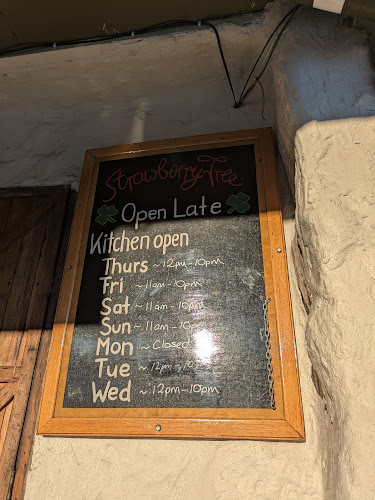 Strawberry Tree
Open Late
Kitchen open
Thurs ~ 12pm - 10pm
Fri ~ 11am - 10pm
Sat ~ 11am - 10pm
Sun ~ 11am - 10pm
Mon ~ Closed
Tue ~ 12pm - 10pm
Wed ~ 12pm - 10pm